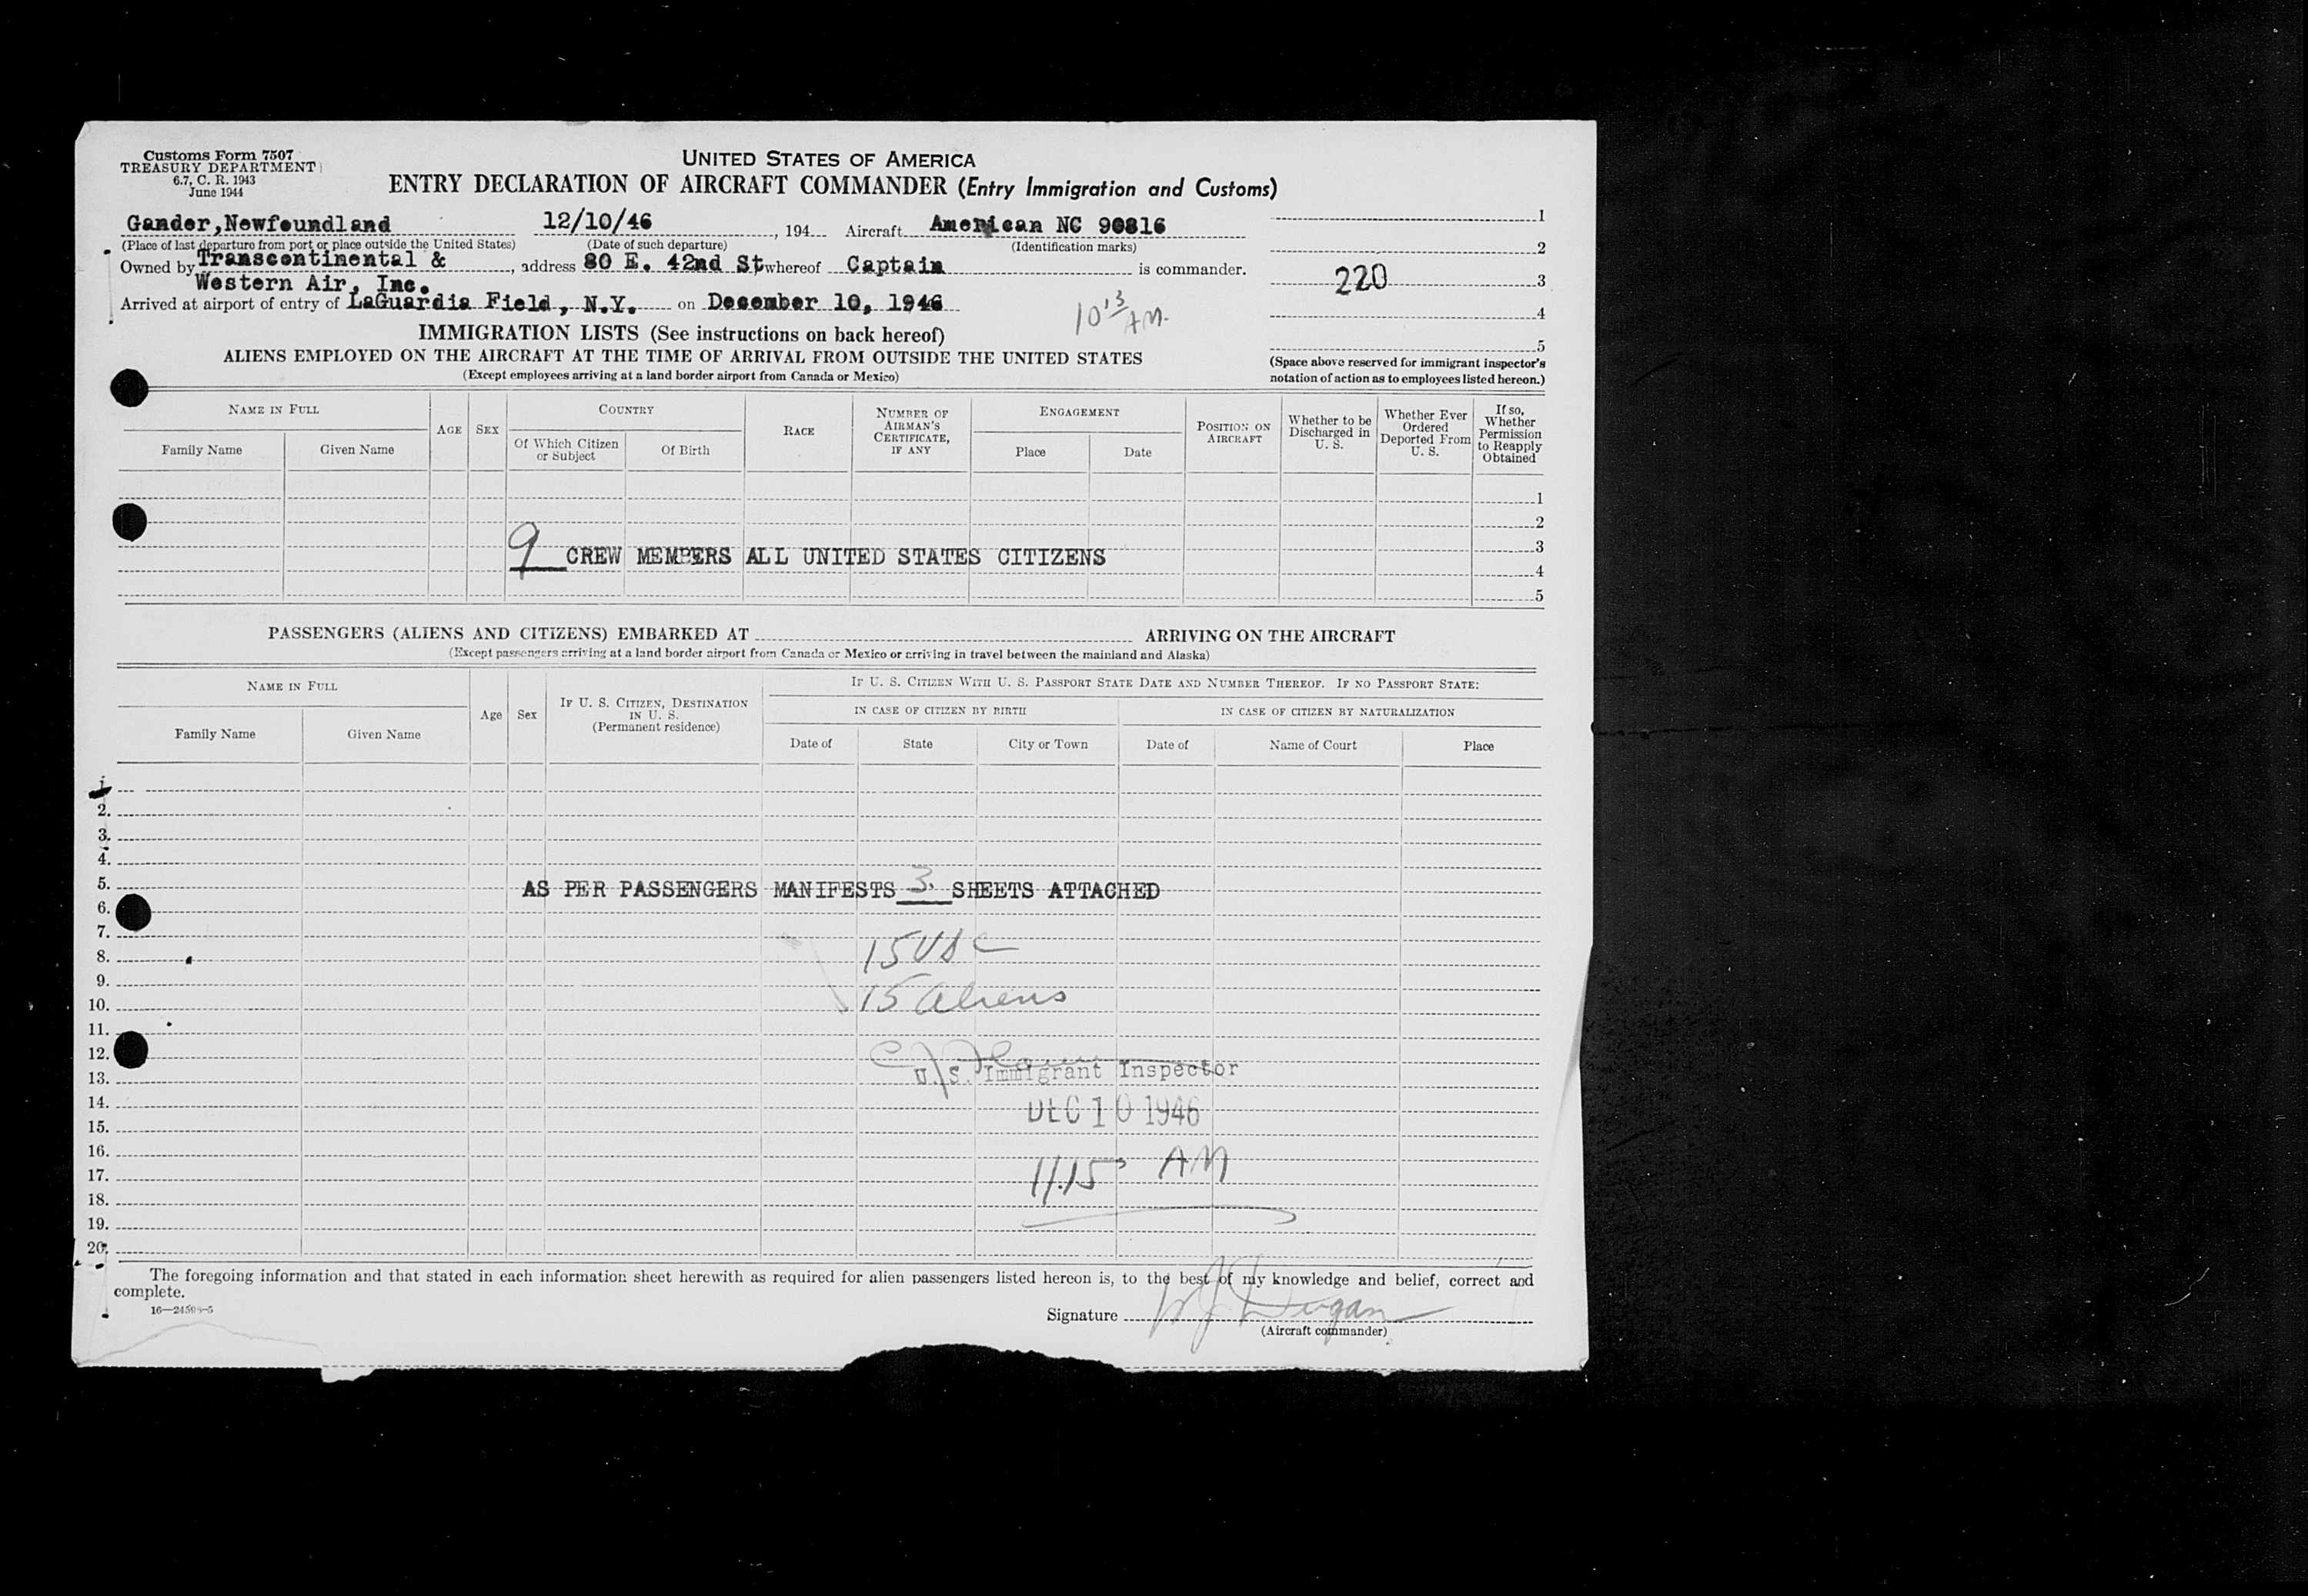 Customs Form 7507
TREASURY DEPARTMENT
6.7, C. R. 1943
June 1944
UNITED STATES OF AMERICA
ENTRY DECLARATION OF AIRCRAFT COMMANDER (Entry Immigration and Customs)
Gander,Newfoundland 12/10/46, 194 Aircraft American NC 90816
(Place of last departure from port or place outside the United States) (Date of such departure) (Identification marks)
Owned by Transcontinental & , address 80 E. 42nd St whereof Captain is commander.
Western Air, Inc.
Arrived at airport of entry of LaGuardia Field, N.Y. on December 10, 1946
10 13 AM.
1
2
220 3
4
5
(Space above reserved for immigrant inspector's
notation of action as to employees listed hereon.)
IMMIGRATION LISTS (See instructions on back hereof)
ALIENS EMPLOYED ON THE AIRCRAFT AT THE TIME OF ARRIVAL FROM OUTSIDE THE UNITED STATES
(Except employees arriving at a land border airport from Canada or Mexico)
NAME IN FULL
Family Name Given Name
AGE
SEX
COUNTRY
Of Which Citizen or Subject
Of Birth
RACE
NUMBER OF AIRMAN'S CERTIFICATE, IF ANY
ENGAGEMENT
Place Date
POSITION ON AIRCRAFT
Whether to be Discharged in U. S.
Whether Ever Ordered Deported From U. S.
If so, Whether Permission to Reapply Obtained
1
2
3
9 CREW MEMBERS ALL UNITED STATES CITIZENS
4
5
PASSENGERS (ALIENS AND CITIZENS) EMBARKED AT ARRIVING ON THE AIRCRAFT
(Except passengers arriving at a land border airport from Canada or Mexico or arriving in travel between the mainland and Alaska)
NAME IN FULL
Family Name Given Name
Age
Sex
IF U. S. CITIZEN, DESTINATION IN U. S.
(Permanent residence)
IF U. S. CITIZEN WITH U. S. PASSPORT STATE DATE AND NUMBER THEREOF. IF NO PASSPORT STATE:
IN CASE OF CITIZEN BY BIRTH IN CASE OF CITIZEN BY NATURALIZATION
Date of State City or Town Date of Name of Court Place
1.
2.
3.
4.
5. AS PER PASSENGERS MANIFESTS 3 SHEETS ATTACHED
6.
7.
8. 15 USC
9.
10. 15 aliens
11.
12.
13. U. S. Immigrant Inspector
14. DEC 10 1946
15.
16.
17. 11.15 AM
18.
19.
20.
The foregoing information and that stated in each information sheet herewith as required for alien passengers listed hereon is, to the best of my knowledge and belief, correct and
complete.
16—24594-5
Signature Dugan
(Aircraft commander)